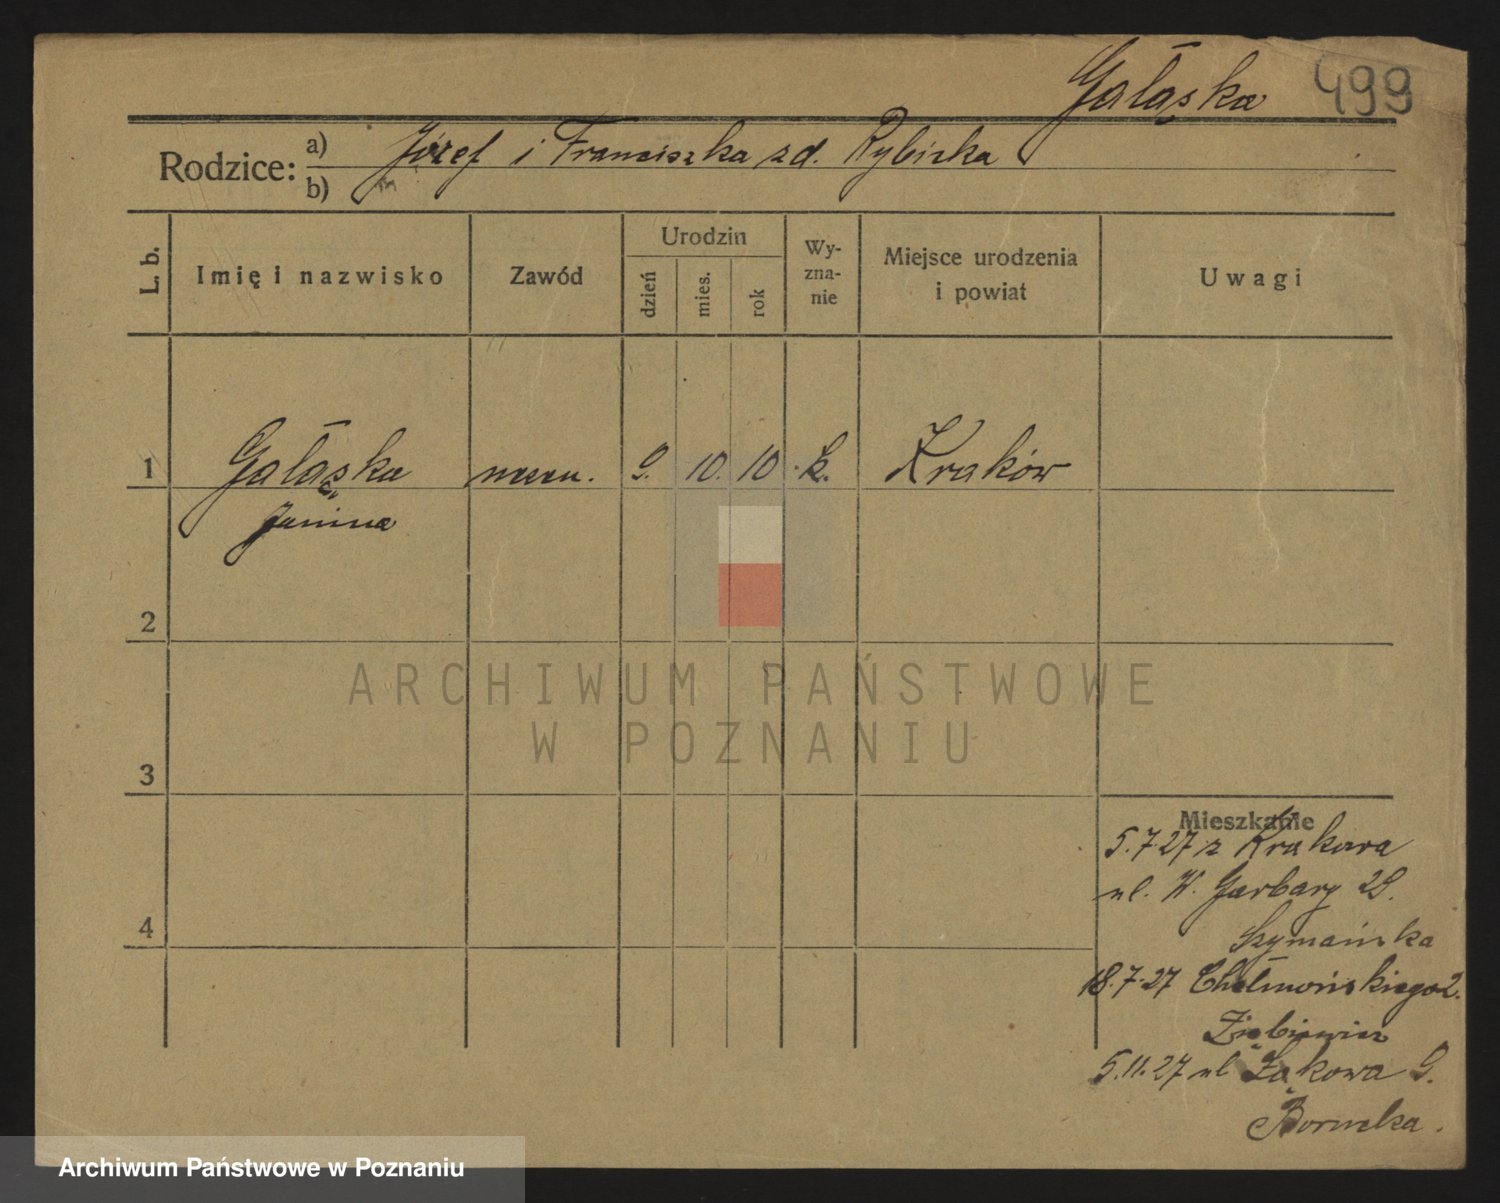 Gałąska 499
Rodzice: a) Józef i Franciszka zd. Rybicka
b)
L. b. Imię i nazwisko Zawód Urodzin dzień mies. rok Wyznanie Miejsce urodzenia i powiat Uwagi
1 Gałąska 9. 10. 10 k. Kraków
Janina
2
ARCHIWUM PAŃSTWOWE
W POZNANIU
3
Mieszkanie
5.7.27 z Krakowa
ul. W. Garbary 29.
Szymańska
18.7.27 Chełmońskiego 2.
5.11.27 ul Łąkowa 9.
4
Archiwum Państwowe w Poznaniu